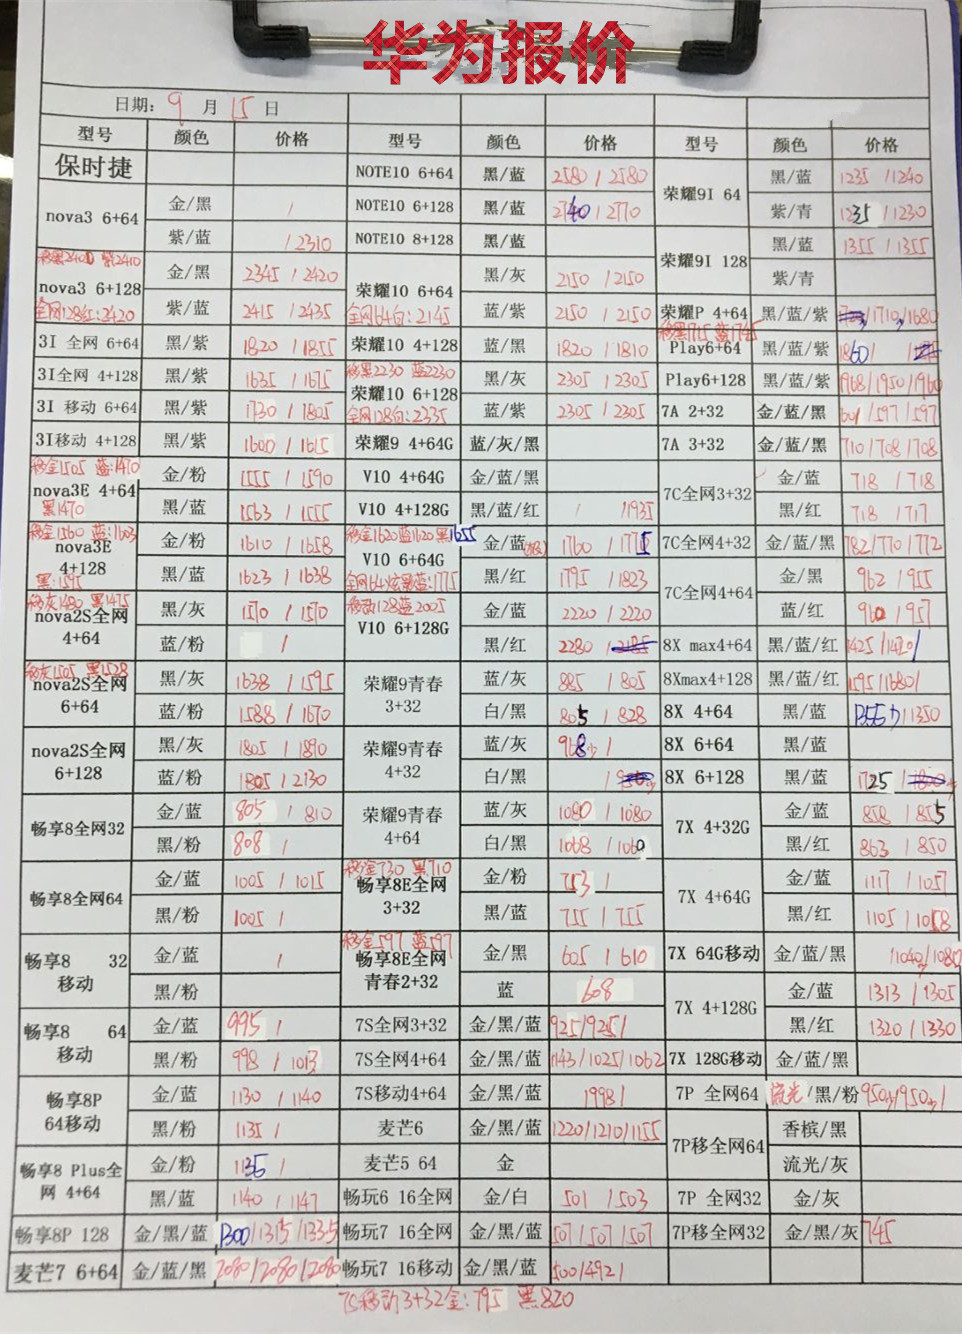 华为报价
日期: 9 月 15 日
型号 颜色 价格 型号 颜色 价格 型号 颜色 价格
保时捷
nova3 6+64 金/黑 /
紫/蓝 / 2310
移黑2400 紫2410
nova3 6+128 金/黑 2345 / 2420
全网128红:2420 紫/蓝 2415 / 2435
3I 全网 6+64 黑/紫 1820 / 1855
3I全网 4+128 黑/紫 1635 / 1675
3I 移动 6+64 黑/紫 1730 / 1805
3I移动 4+128 黑/紫 1600 / 1615
移金1505 蓝:1470
nova3E 4+64 金/粉 1555 / 1590
黑1470 黑/蓝 1563 / 1555
移金1560 蓝:1603
nova3E 4+128 金/粉 1610 / 1658
黑:1595 黑/蓝 1623 / 1638
移灰1480 黑1475
nova2S全网 4+64 黑/灰 1570 / 1570
蓝/粉 /
移灰1505 黑1528
nova2S全网 6+64 黑/灰 1638 / 1595
蓝/粉 1588 / 1670
nova2S全网 6+128 黑/灰 1805 / 1890
蓝/粉 1805 / 2130
畅享8全网32 金/蓝 805 / 810
黑/粉 808 /
畅享8全网64 金/蓝 1005 / 1015
黑/粉 1005 /
畅享8 32 移动 金/蓝 /
黑/粉
畅享8 64 移动 金/蓝 995 /
黑/粉 998 / 1013
畅享8P 64移动 金/蓝 1130 / 1140
黑/粉 1135 /
畅享8 Plus全网 4+64 金/粉 1135 /
黑/蓝 1140 / 1147
畅享8P 128 金/黑/蓝 1300/1315/1335
麦芒7 6+64 金/蓝/黑 2080/2080/2080
NOTE10 6+64 黑/蓝 2580 / 2580
NOTE10 6+128 黑/蓝 2740 / 2770
NOTE10 8+128 黑/蓝
荣耀10 6+64 黑/灰 2150 / 2150
全网64白:2145 蓝/紫 2150 / 2150
荣耀10 4+128 蓝/黑 1820 / 1810
移黑2230 蓝2230
荣耀10 6+128 黑/灰 2305 / 2305
全网128白:2335 蓝/紫 2305 / 2305
荣耀9 4+64G 蓝/灰/黑
V10 4+64G 金/蓝/黑
V10 4+128G 黑/蓝/红 / 1935
移金1620蓝1620黑1655
V10 6+64G 金/蓝 1760 / 1775
全网64炫黑蓝:1775 黑/红 1795 / 1823
移动128蓝2005
V10 6+128G 金/蓝 2220 / 2220
黑/红 2280 /
荣耀9青春 3+32 蓝/灰 885 / 805
白/黑 805 / 828
荣耀9青春 4+32 蓝/灰 968少 /
白/黑 /
荣耀9青春 4+64 蓝/灰 1080 / 1080
白/黑 1068 / 1060
移金730 黑710
畅享8E全网 3+32 金/粉 753 /
黑/蓝 755 / 755
移金597 蓝597
畅享8E全网 青春2+32 金/黑 605 / 610
蓝 608
7S全网3+32 金/黑/蓝 925/925/
7S全网4+64 金/黑/蓝 1143/1025/1062
7S移动4+64 金/黑/蓝 1998/
麦芒6 金/黑/蓝 1220/1210/1155
麦芒5 64 金
畅玩6 16全网 金/白 501 / 503
畅玩7 16全网 金/黑/蓝 507/507/507
畅玩7 16移动 金/黑/蓝 500/492/
荣耀9I 64 黑/蓝 1235 / 1240
紫/青 1235 / 1230
荣耀9I 128 黑/蓝 1355 / 1355
紫/青
荣耀P 4+64 黑/蓝/紫 /1710/1680
移黑1715 蓝1745
Play6+64 黑/蓝/紫 1860/ /
Play6+128 黑/蓝/紫 1968/1950/1960
7A 2+32 金/蓝/黑 601/597/597
7A 3+32 金/蓝/黑 710/708/708
7C全网3+32 金/蓝 718 / 718
黑/红 718 / 717
7C全网4+32 金/蓝/黑 782/770/772
7C全网4+64 金/黑 962 / 955
蓝/红 960 / 957
8X max4+64 黑/蓝/红 1425/1420/
8Xmax4+128 黑/蓝/红 1595/1680/
8X 4+64 黑/蓝 1355少/1350
8X 6+64 黑/蓝
8X 6+128 黑/蓝 1725 /
7X 4+32G 金/蓝 858 / 855
黑/红 863 / 850
7X 4+64G 金/蓝 1117 / 1057
黑/红 1105 / 1058
7X 64G移动 金/蓝/黑 /1040/1080
7X 4+128G 金/蓝 1313 / 1305
黑/红 1320 / 1330
7X 128G移动 金/蓝/黑
7P 全网64 流光/黑/粉 950少/950少/
7P移全网64 香槟/黑
流光/灰
7P 全网32 金/灰
7P移全网32 金/黑/灰 745
7S移动3+32金:795 黑820